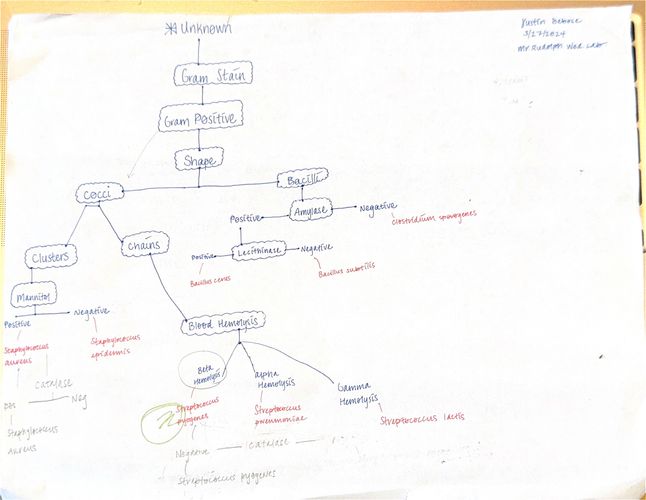 * Unknown
3/27/2024
Mr. Rudolph Wed Lab
Gram Stain
Gram Positive
Shape
Cocci
Bacilli
Amylase
Positive
Negative
Clostridium sporogenes
Clusters
Chains
Positive
Lecithinase
Negative
Bacillus cereus
Bacillus subtilis
Mannitol
Positive
Negative
Blood Hemolysis
Staphylococcus
aureus
Staphylococcus
epidermis
Beta
Hemolysis
alpha
Hemolysis
Gamma
Hemolysis
Catalase
Pos
Neg
Streptococcus
pyogenes
Streptococcus
pneumoniae
Streptococcus lactis
Staphylococcus
aureus
Negative
Catalase
Streptococcus pyogenes